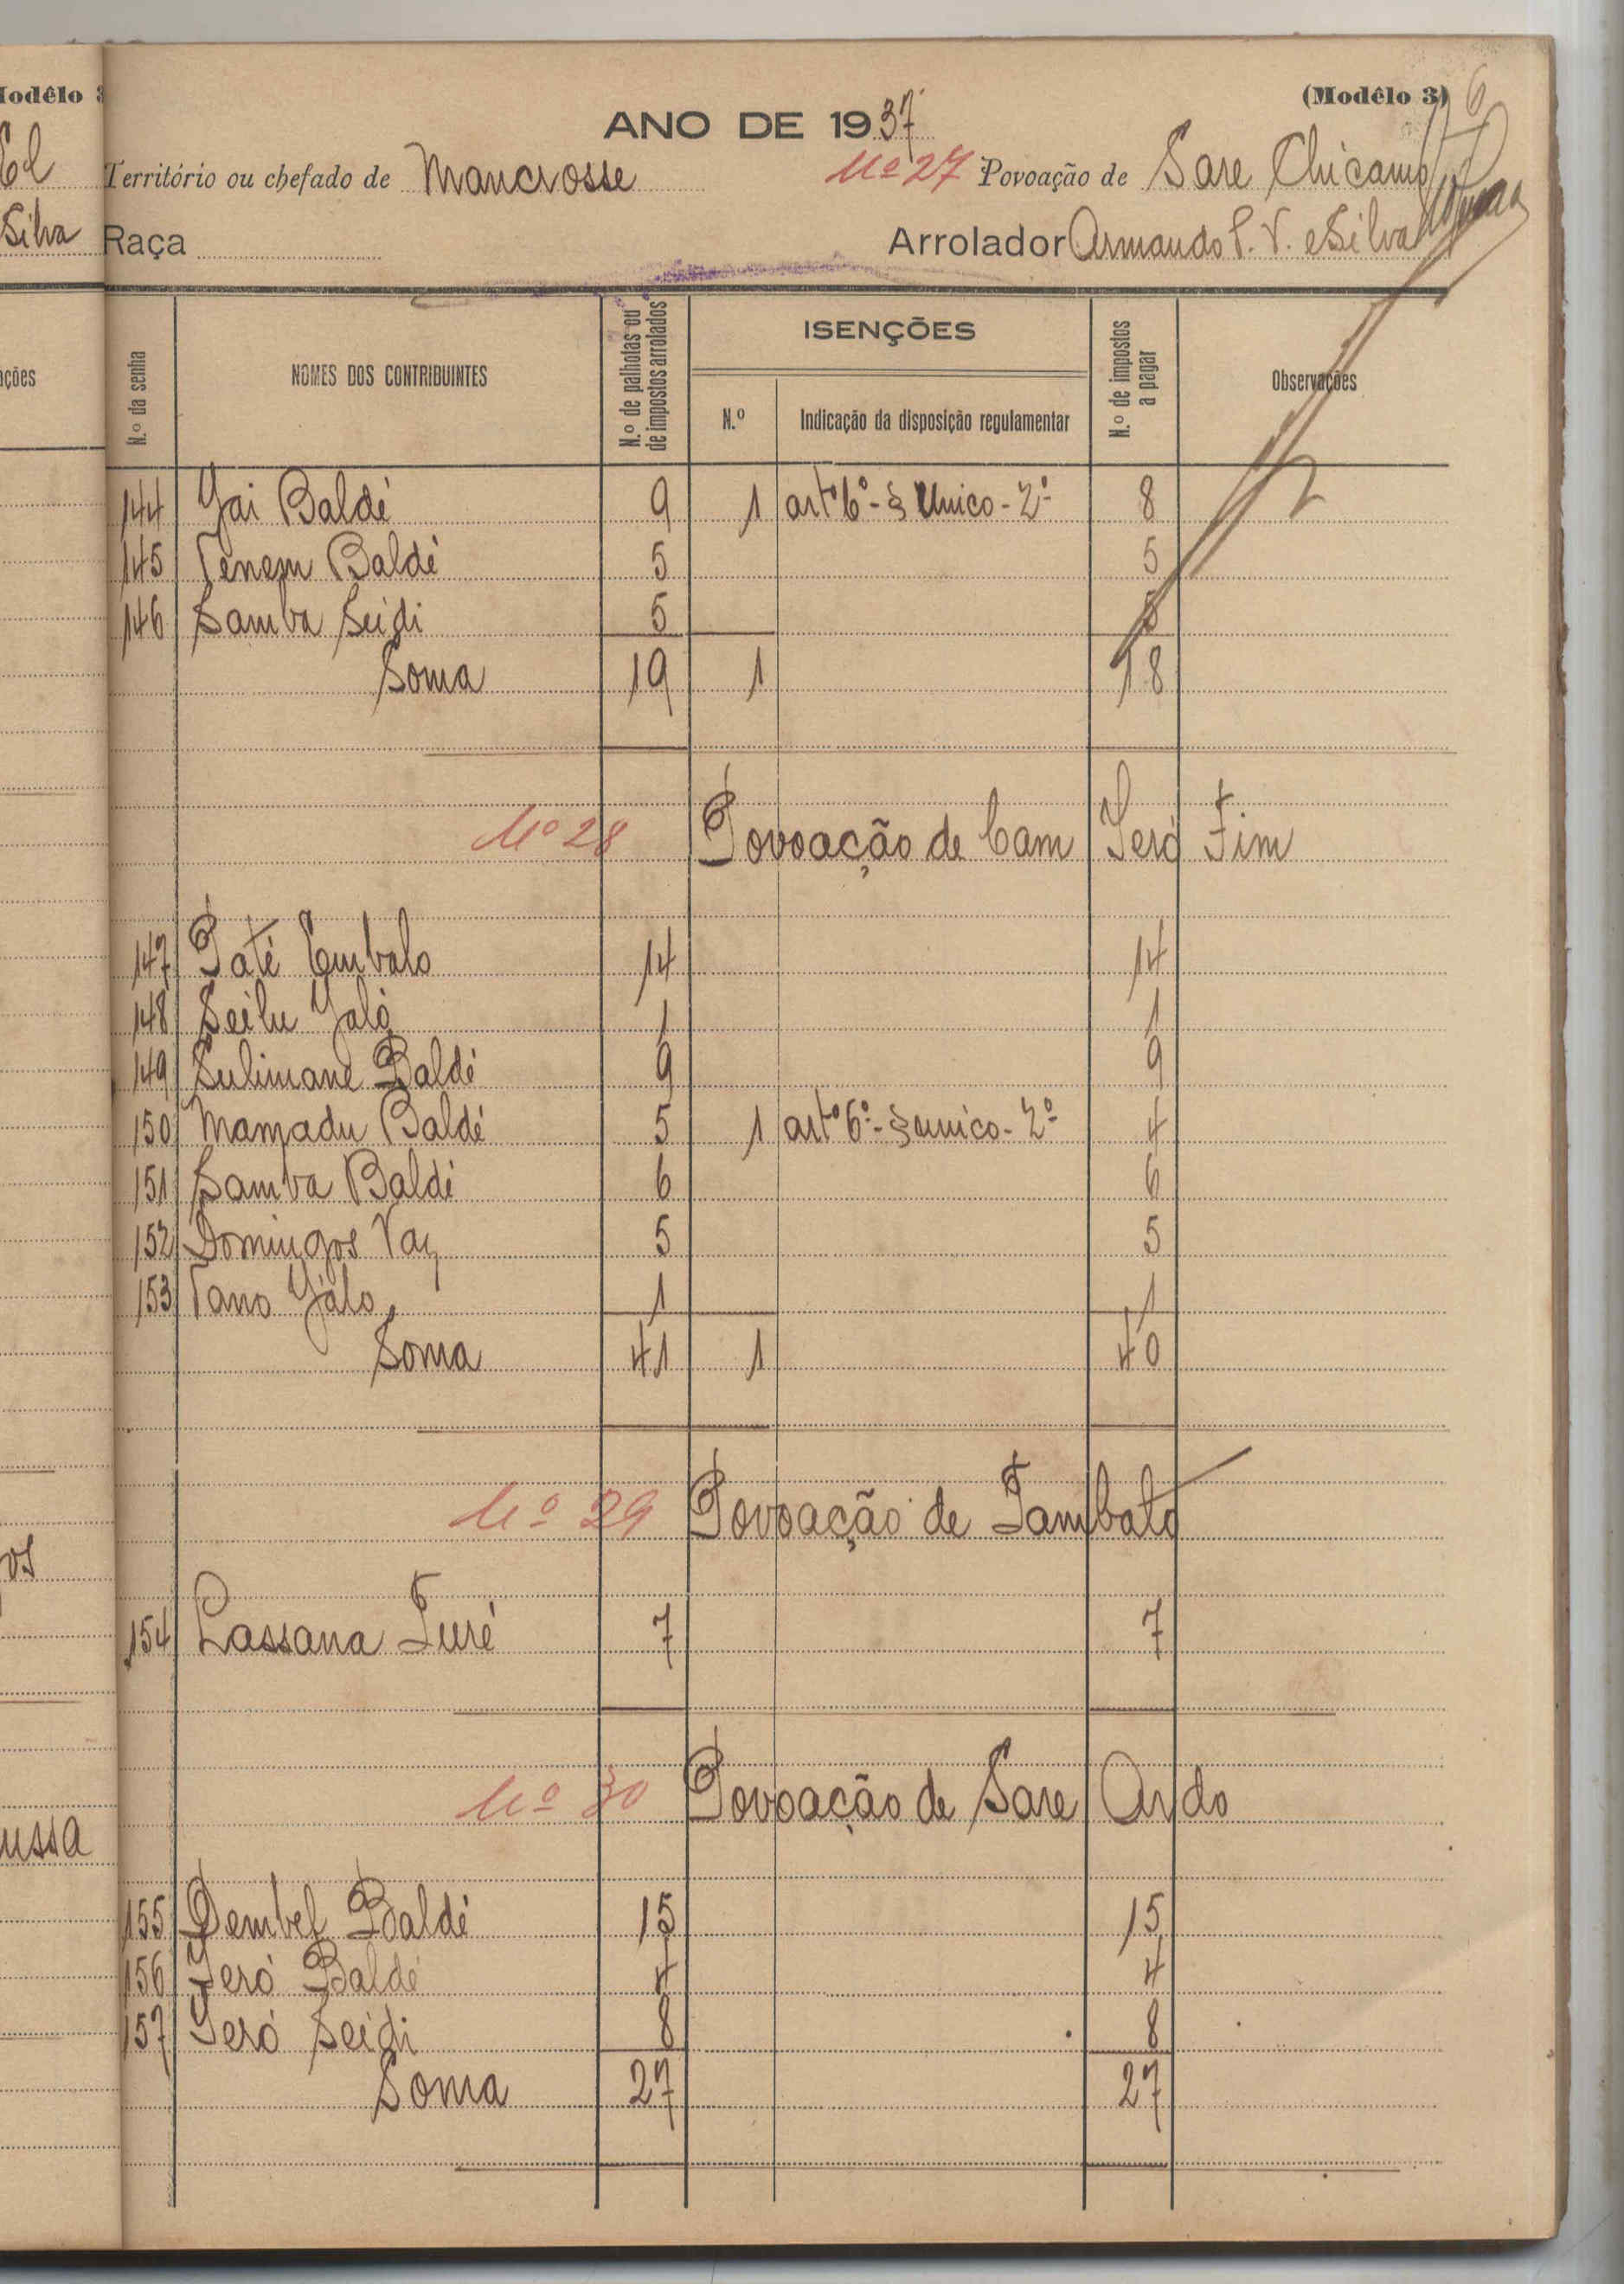 (Modêlo 3) 6
ANO DE 1937
Território ou chefado de Mancrosse Nº 27 Povoação de Sare Chicamo
Raça Arrolador Armando P. V. e Silva
N.º da senha NOMES DOS CONTRIBUINTES N.º de palhotas ou de impostos arrolados ISENÇÕES N.º Indicação da disposição regulamentar N.º de impostos a pagar Observações
144 Jai Baldé 9 1 artº 6º - § Unico - 2º 8
145 Tenem Baldé 5 5
146 Samba Seidi 5 5
Soma 19 1 18
Nº 28 Povoação de Cam Jeró Fim
147 Paté Embalo 14 14
148 Seilu Jaló 1 1
149 Sulimane Baldé 9 9
150 Mamadu Baldé 5 1 artº 6º - § unico - 2º 4
151 Samba Baldé 6 6
152 Domingos Vaz 5 5
153 Tano Jalo 1 1
Soma 41 1 40
Nº 29 Povoação de Tambato
154 Lassana Turé 7 7
Nº 30 Povoação de Sare Ardo
155 Dembel Baldé 15 15
156 Jeró Baldé 4 4
157 Jeró Seidi 8 8
Soma 27 27
Modêlo 3
El
Silva
ações
os
ussa